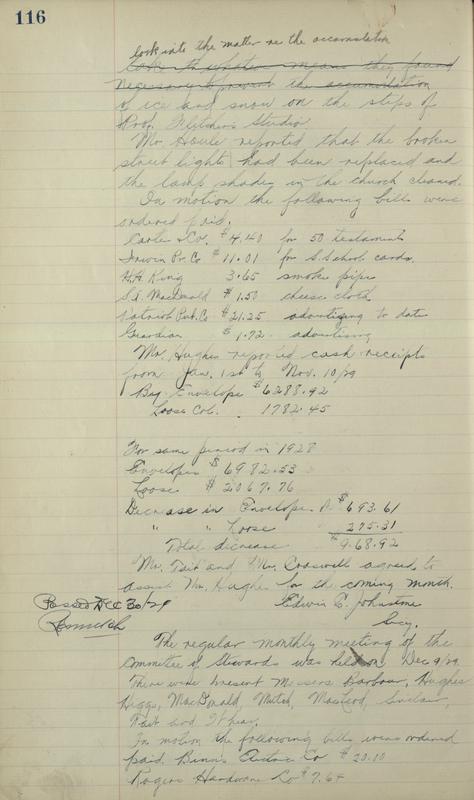 116
look into the matter re the accumulation
look to what means they found
necessary to prevent the accumulation
of ice and snow on the steps of
Prof. Fletcher's Studio.
Mr. Houle reported that the broken
street lights had been replaced and
the lamp shades in the church cleaned.
On motion the following bills were
ordered paid.
Carter & Co. $4.40 for 50 testaments
Irwin Pr. Co $11.01 for S. School cards.
H.H. King 3.65 smoke pipe
S.A. MacDonald $1.50 cheese cloth
Patriot Pub. Co $21.25 advertising to date
Guardian $1.72 advertising
Mr. Hughes reported cash receipts
from Jan. 1st to Nov. 10/29
By Envelope $6288.92
Loose Col. 1782.45
For same period in 1928
Envelopes $6982.53
Loose $2067.76
Decrease in Envelopes $693.61
" " Loose 275.31
Total decrease $968.92
Mr. Tait and Mr. agreed to
assist Mr. Hughes for the coming month.
Edwin C. Johnstone
Secy.
Passed Dec 30/29
The regular monthly meeting of the
Committee of Stewards was held on Dec 9/29.
There were present Messers Barbour, Hughes
Higgs, MacDonald, Mutch, MacLeod, Sinclair,
Tait and
On motion the following bills were ordered
paid. Co $20.10
Rogers Hardware Co $7.64